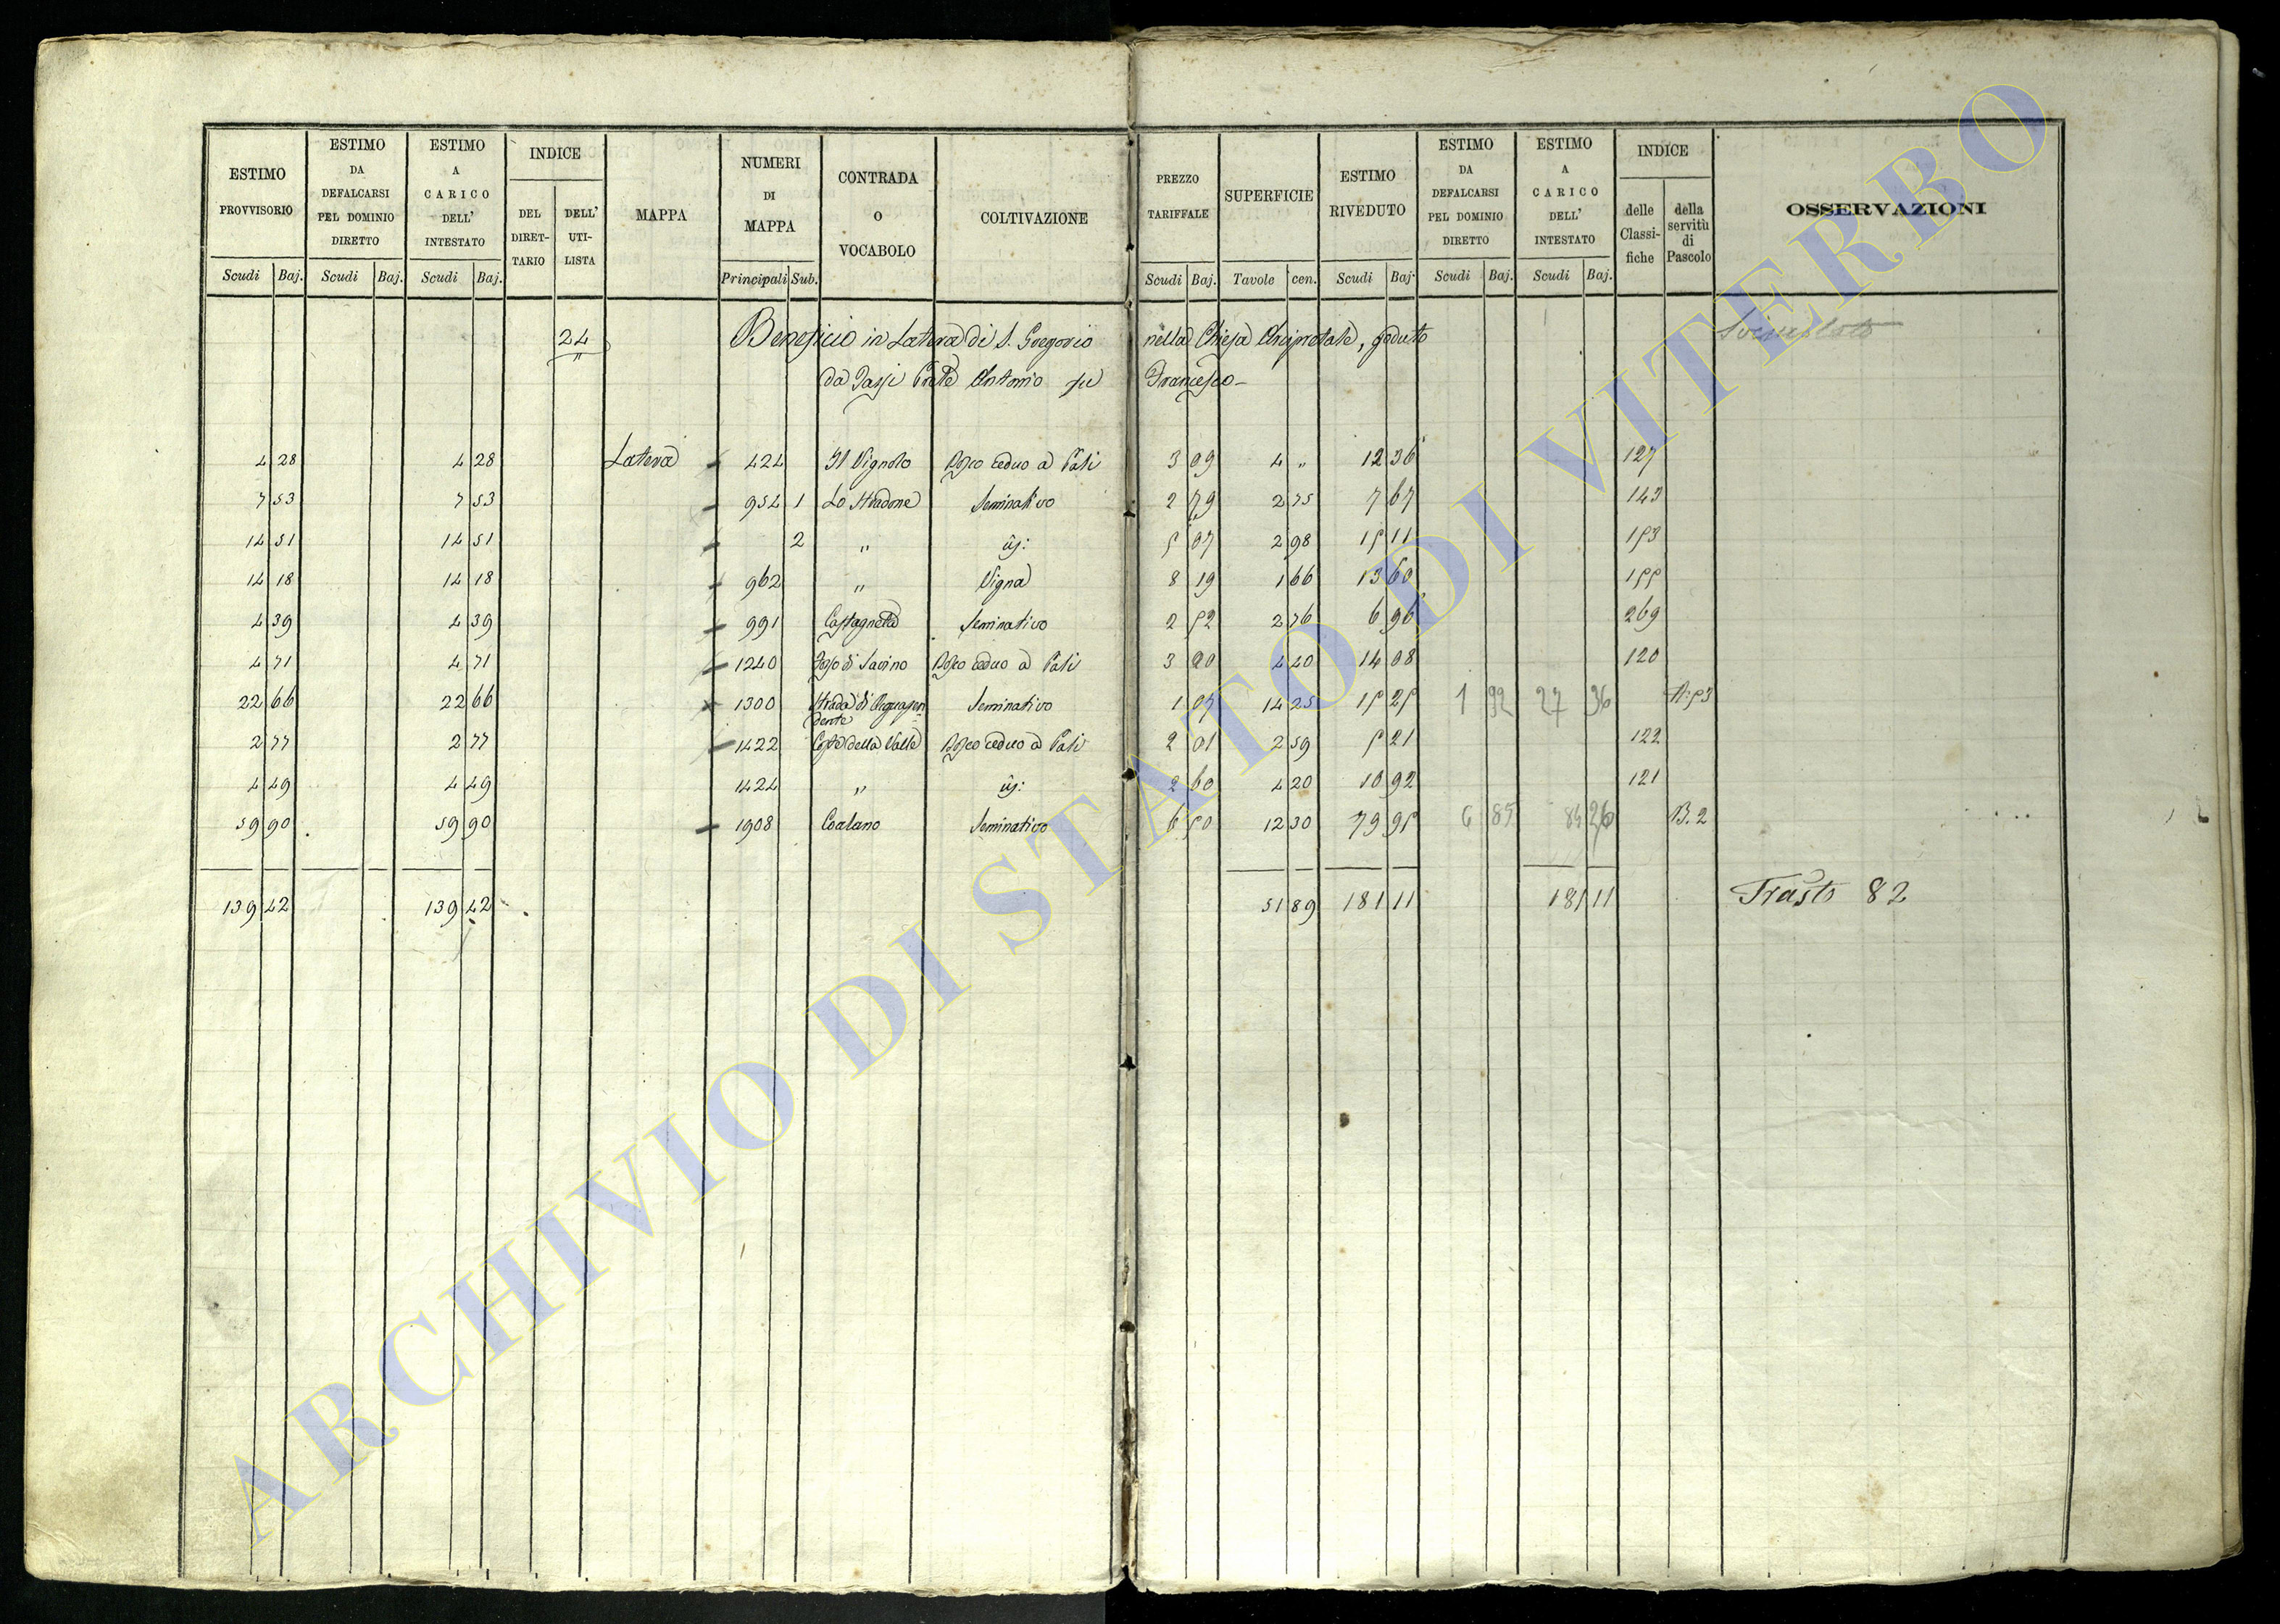 ESTIMO PROVVISORIO Scudi Baj. | ESTIMO DA DEFALCARSI PEL DOMINIO DIRETTO Scudi Baj. | ESTIMO A CARICO DELL' INTESTATO Scudi Baj. | INDICE DEL DIRET-TARIO DELL' UTI-LISTA | MAPPA | NUMERI DI MAPPA Principali Sub. | CONTRADA O VOCABOLO | COLTIVAZIONE | PREZZO TARIFFALE Scudi Baj. | SUPERFICIE Tavole cen. | ESTIMO RIVEDUTO Scudi Baj. | ESTIMO DA DEFALCARSI PEL DOMINIO DIRETTO Scudi Baj. | ESTIMO A CARICO DELL' INTESTATO Scudi Baj. | INDICE delle Classi-fiche della servitù di Pascolo | OSSERVAZIONI
24 Beneficio in Latera di S. Gregorio nella Chiesa Arcipretale, goduto
da Prete Antonio fu Francesco
4 28 4 28 Latera 424 Il Vignolo Bosco ceduo a Pali 3 09 4 " 12 36 127
7 53 7 53 954 1 Lo Stradone Seminativo 2 79 2 75 7 67 143
14 51 14 51 2 " 5 07 2 98 15 11 153
14 18 14 18 962 " Vigna 8 19 1 66 13 60 155
4 39 4 39 991 Castagneta Seminativo 2 52 2 76 6 96 269
4 71 4 71 1240 di Savino Bosco ceduo a Pali 3 20 4 40 14 08 120
22 66 22 66 1300 Strada di Acquapendente Seminativo 1 07 14 25 15 25 1 92 27 36 A.53
2 77 2 77 1422 Coste della Valle Bosco ceduo a Pali 2 01 2 59 5 21 122
4 49 4 49 1424 " 2 60 4 20 10 92 121
59 90 59 90 1908 Seminativo 6 50 12 30 79 95 6 85 84 26 B.2
139 42 139 42 51 89 181 11 181 11 Trasto 82
ARCHIVIO DI STATO DI VITERBO